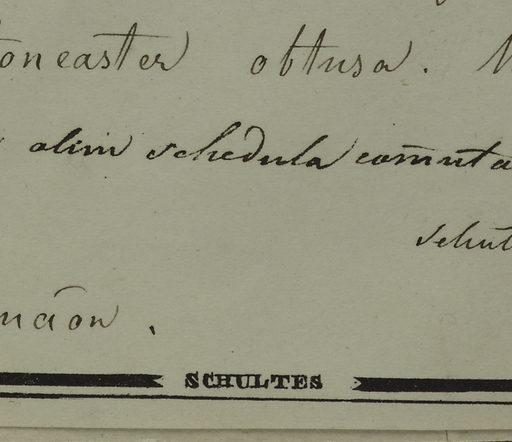 oneaster obtusa.
olim schedula com̄uta
schult
SCHULTES